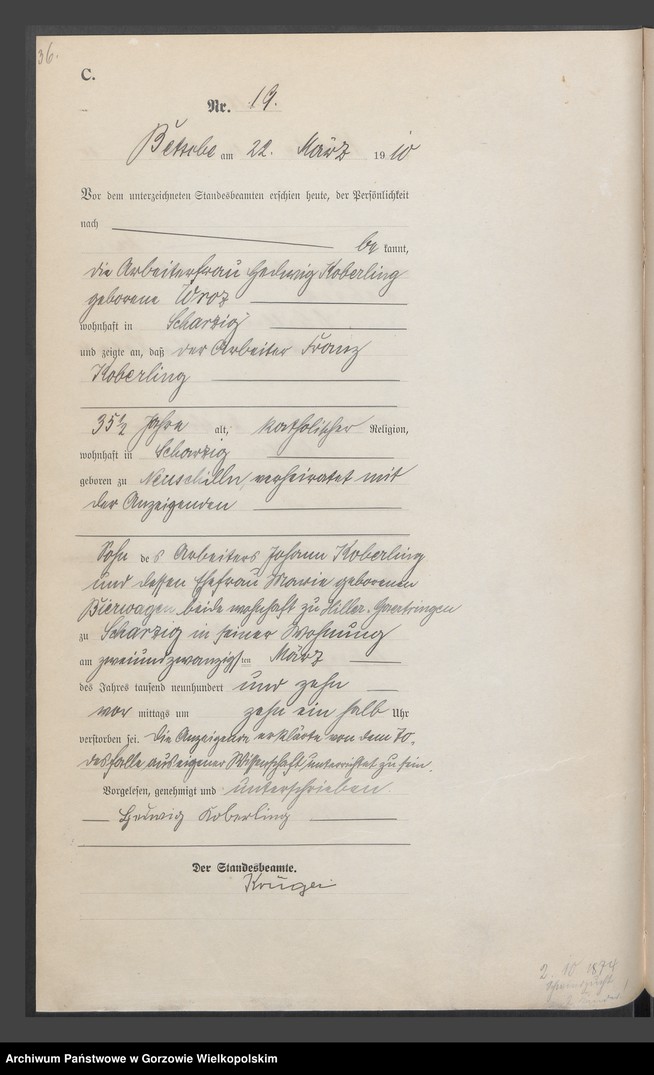 36.
C.
Nr. 19.
Betsche am 22. März 1910
Vor dem unterzeichneten Standesbeamten erschien heute, der Persönlichkeit
nach
be kannt,
die Arbeiterfrau Hedwig Koberling
geborene Wroz
wohnhaft in Scharzig
und zeigte an, daß der Arbeiter Franz
Koberling
35½ Jahre alt, katholischer Religion,
wohnhaft in Scharzig
geboren zu verheiratet mit
der Anzeigenden
Sohn des Arbeiters Johann Koberling
und dessen Ehefrau Marie geborenen
Bierwagen beide wohnhaft zu Hiller-Gaertringen
zu Scharzig in seiner Wohnung
am zweiundzwanzigsten März
des Jahres tausend neunhundert und zehn
vor mittags um zehn ein halb Uhr
verstorben sei. Die Anzeigende erklärte von dem To-
desfalle aus eigener Wissenschaft unterrichtet zu sein.
Vorgelesen, genehmigt und unterschrieben.
Hedwig Koberling
Der Standesbeamte.
Krüger
2. 10 1874
Archiwum Państwowe w Gorzowie Wielkopolskim